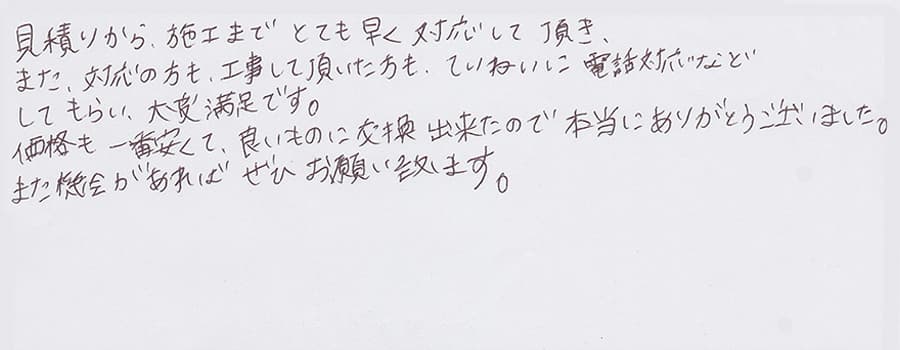 見積りから、施工まで とても早く対応して頂き、
また、対応の方も、工事して頂いた方も、ていねいに電話対応など
してもらい、大変満足です。
価格も一番安くて、良いものに交換出来たので本当にありがとうございました。
また機会があれば ぜひ お願い致します。